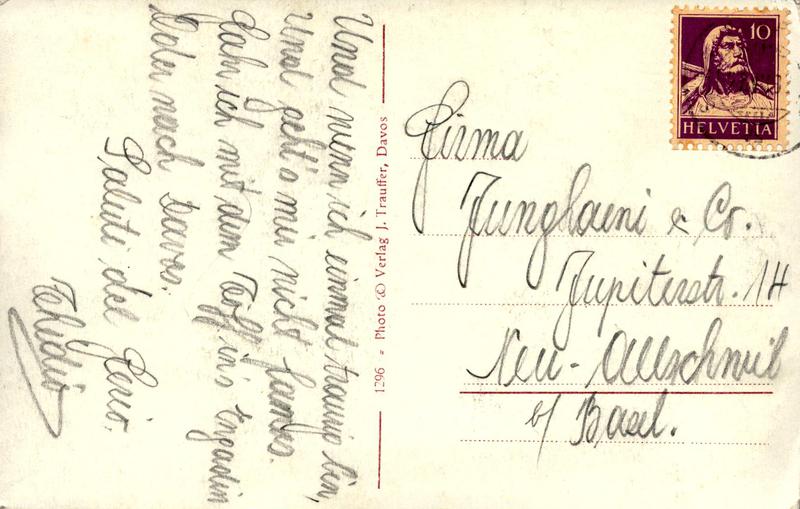 Und wenn ich einmal traurig bin,
Und geht's mir nicht famos.
Fahr ich mit dem Töff ins Engadin
Oder nach Davos.
Saluti del
1296 = Photo & Verlag J. Trauffer, Davos
10
HELVETIA
Firma
& Co.
Jupiterstr. 14
Neu-Allschwil
b/ Basel.